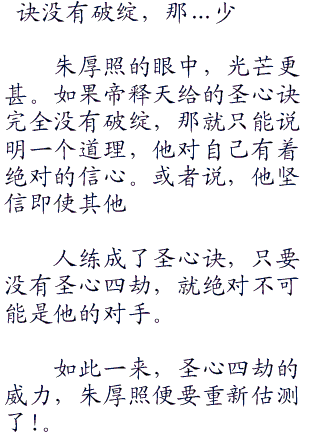 诀没有破绽，那…少
朱厚照的眼中，光芒更
甚。如果帝释天给的圣心诀
完全没有破绽，那就只能说
明一个道理，他对自己有着
绝对的信心。或者说，他坚
信即使其他
人练成了圣心诀，只要
没有圣心四劫，就绝对不可
能是他的对手。
如此一来，圣心四劫的
威力，朱厚照便要重新估测
了!。